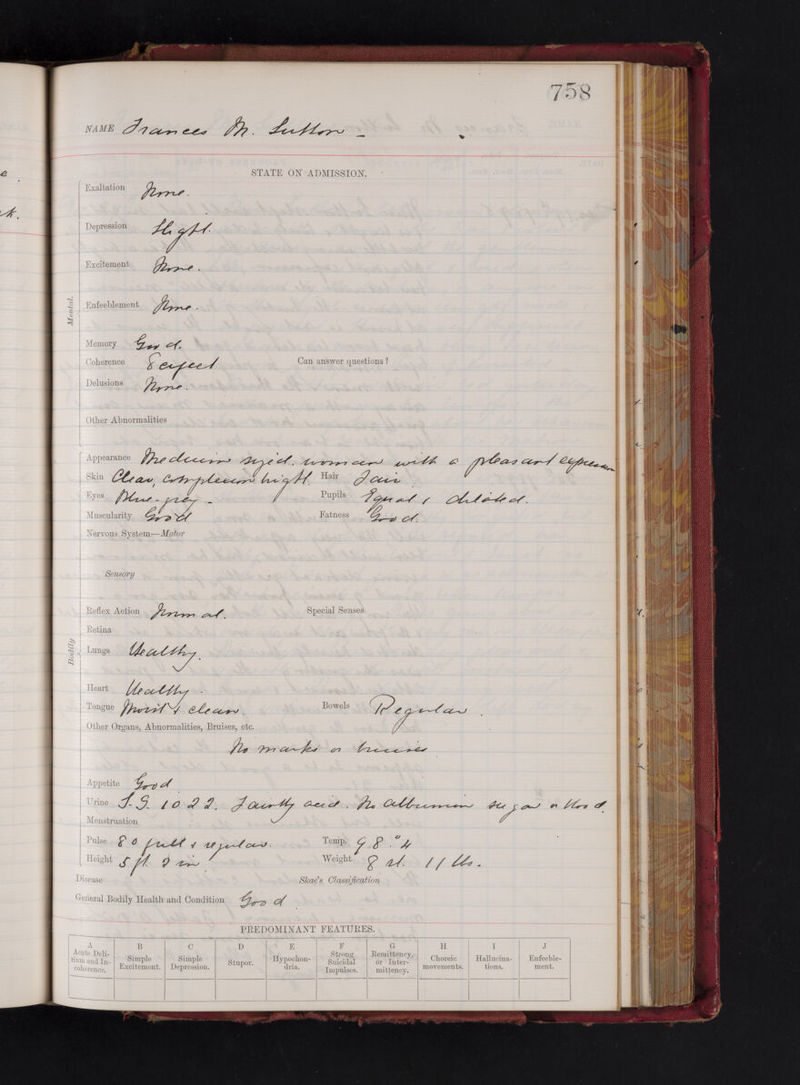 758
NAME Frances M. Sutton -
STATE ON ADMISSION.
Mental.
Exaltation None.
Depression Slight.
Excitement None.
Enfeeblement None.
Memory Good.
Coherence Perfect Can answer questions?
Delusions None.
Other Abnormalities
Bodily
Appearance Medium sized, woman with a pleasant expression
Skin Clear, complexion bright. Hair Fair.
Eyes Blue-grey - Pupils Equal & dilated.
Muscularity Good Fatness Good.
Nervous System—Motor
Sensory
Reflex Action Normal. Special Senses
Retina
Lungs Healthy.
Heart Healthy.
Tongue Moist & clean Bowels Regular.
Other Organs, Abnormalities, Bruises, etc.
No marks or bruises
Appetite Good
Urine S.G. 1022. Faintly acid. No albumen sugar or blood.
Menstruation
Pulse 80 full & regular. Temp. 98.°4
Height 5 ft. 2 in Weight 8 st. 11 lbs.
Disease Skae's Classification
General Bodily Health and Condition Good.
PREDOMINANT FEATURES.
A B C D E F G H I J
Acute Delirium and Incoherence. Simple Excitement. Simple Depression. Stupor. Hypochondria. Strong Suicidal Impulses. Remittency, or Intermittency. Choreic movements. Hallucinations. Enfeeblement.